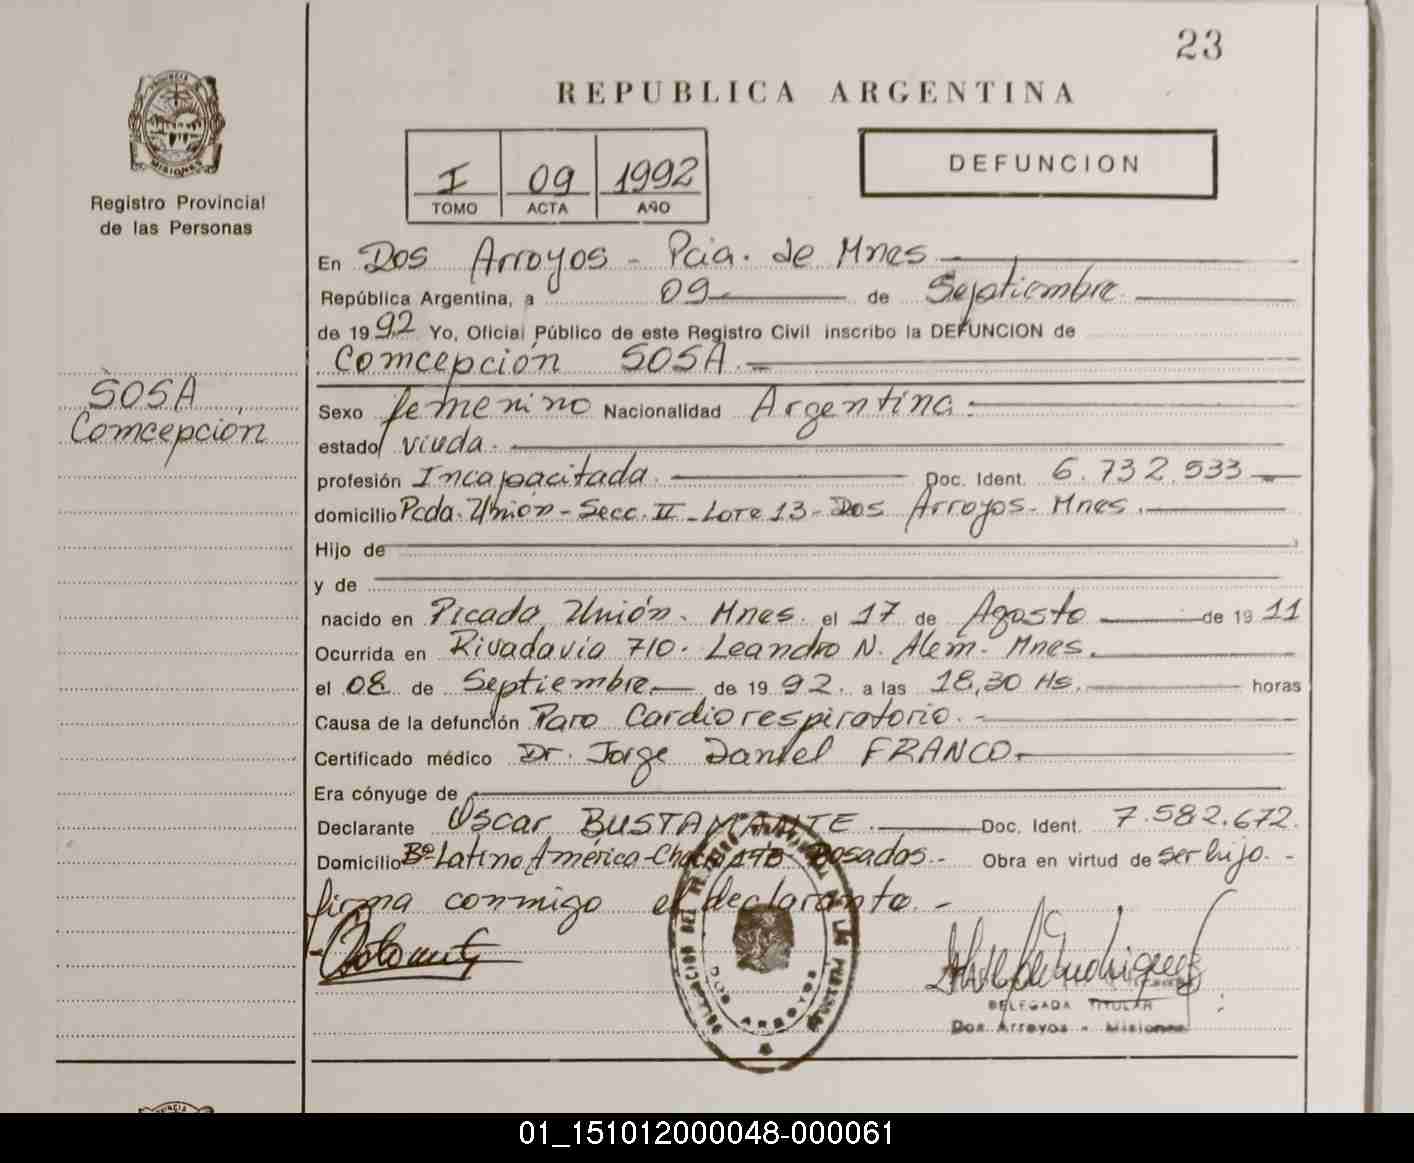 23
REPUBLICA ARGENTINA
MISIONES
Registro Provincial
de las Personas
I 09 1992
TOMO ACTA AÑO
DEFUNCION
En Dos Arroyos - Pcia. de Mnes
República Argentina, a 09 de Septiembre
de 1992 Yo, Oficial Público de este Registro Civil inscribo la DEFUNCION de
Comcepción SOSA.
SOSA
Comcepción
Sexo femenino Nacionalidad Argentina.
estado viuda.
profesión Incapacitada. Doc. Ident. 6.732.533
domicilio Pcda. Unión - Secc. II - Lote 13 - Dos Arroyos - Mnes.
Hijo de
y de
nacido en Picada Unión - Mnes. el 17 de Agosto de 1911
Ocurrida en Rivadavia 710. Leandro N. Alem. Mnes.
el 08 de Septiembre de 1992. a las 18,30 Hs. horas
Causa de la defunción Paro Cardiorespiratorio.
Certificado médico Dr. Jorge Daniel FRANCO
Era cónyuge de
Declarante Oscar BUSTAMANTE. Doc. Ident. 7.582.672.
Domicilio Bº Latino América - 178 - Posadas. - Obra en virtud de ser hijo. -
firma conmigo el declarante. -
DOS ARROYOS
DELEGADA TITULAR
Dos Arroyos - Misiones
01_151012000048-000061